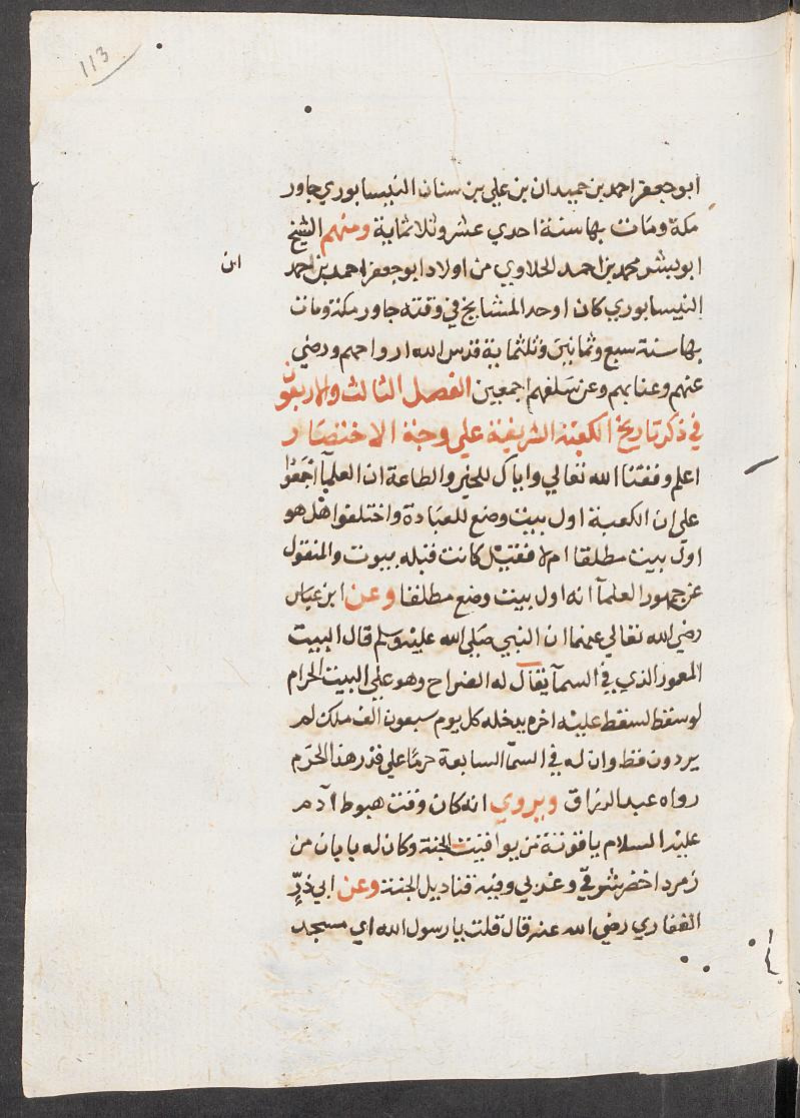 113
ابو جعفر احمد بن حميدان بن علي بن سنان النيسابوري جاور
مكة ومات بها سنة احدي عشر وثلاثماية ومنهم الشيخ
ابو بشر محمد بن احمد الحلاوي من اولاد ابو جعفر احمد بن احمد
ابن
النيسابوري كان اوحد المشايخ في وقته جاور مكة ومات
بها سنة سبع وثمانين وثلثماية قدس الله ارواحهم ورضي
عنهم وعنا بهم وعن سلفهم اجمعين الفصل الثالث والاربعون
في ذكر تاريخ الكعبة الشريفة علي وجه الاختصار
اعلم وفقنا الله تعالي واياك للخير والطاعة ان العلمآ اجمعوا
علي ان الكعبة اول بيت وضع للعبادة واختلفوا هل هو
اول بيت مطلقا ام لا فقيل كانت قبله بيوت والمنقول
عن جمهور العلمآ انه اول بيت وضع مطلقا وعن ابن عباس
رضي الله تعالي عنهما ان النبي صلي الله عليه وسلم قال البيت
المعمور الذي في السمآ يقال له الضراح وهو علي البيت الحرام
لو سقط لسقط عليه اخره يدخله كل يوم سبعون الف ملك لم
يردون قط وان له في السمآ السابعة حرمًا علي قدر هذا الحرم
رواه عبد الرزاق ويروي انه كان وقت هبوط آدم
عليه السلام ياقوتة من يواقيت الجنة وكان له بابان من
زمرد اخضر شرقي وغربي وفيه قناديل الجنة وعن ابي ذرٍّ
الغفاري رضي الله عنه قال قلت يا رسول الله اي مسجد